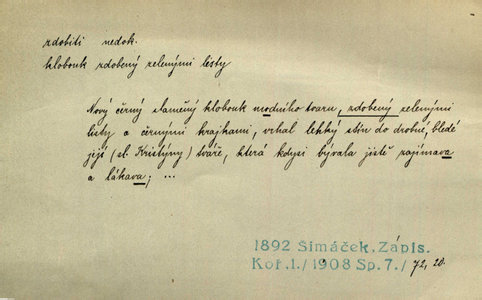 zdobiti nedok.
klobouk zdobený zelenými listy
Nový černý slaměný klobouk modního tvaru, zdobený zelenými
listy a černými krajkami, vrhal lehký stín do drobné, bledé
její (sl. Kristýny) tváře, která kdysi bývala jistě zajímava
a lákava; ...
1892 Šimáček, Zápis.
Koř. 1./1908 Sp. 7./ 72, 20.